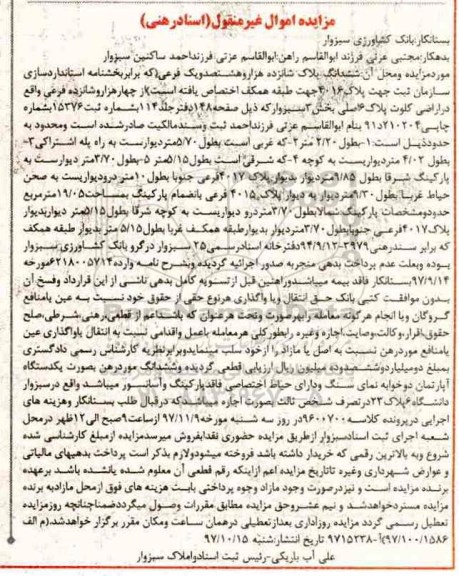 مزایده اموال غیرمنقول(اسنادرهنی)
بستانکار:بانک کشاورزی سبزوار
بدهکار:مجتبی عزتی فرزند ابوالقاسم راهن:ابوالقاسم عزتی:فرزنداحمد ساکنین سبزوار
موردمزایده ومحل آن:ششدانگ پلاک شانزده هزاروهشتصدویک فرعی(که برابربخشنامه استانداردسازی
سازمان ثبت جهت پلاک۴۰۱۶جهت طبقه همکف اختصاص یافته است)از چهارهزاروشانزده فرعی واقع
دراراضی کلوت پلاک۶اصلی بخش۳سبزوارکه ذیل صفحه۱۴۸دفترجلد۱۱۴بشماره ثبت۱۵۳۷۶بشماره
چاپی۲۱۰۲۰۴د۹۱ بنام ابوالقاسم عزتی فرزنداحمد ثبت وسندمالکیت صادرشده است ومحدود به
حدودذیل است:۱-بطول ۲/۲۰ متر۲-که غربی است بطول ۵/۷۰متردیواریست به راه پله اشتراکی۳-
بطول ۴/۰۲ متردیواریست به کوچه ۴-که شرقی است بطول ۵/۱۵متر ۵-بطول ۳/۷۰متر دیواریست به
پارکینگ شرقا بطول ۹/۸۵متردیوار بدیوارپلاک ۴۰۱۷فرعی جنوبا بطول ۱۰متر درودیواریست به صحن
حیاط غربا بطول ۹/۳۰متردیوار به دیوار پلاک ۴۰۱۵ فرعی بانضمام پارکینگ بمساحت۱۹/۰۵مترمربع
حدودومشخصات پارکینگ:شمالابطول ۳/۷۰متردرو دیواریست به کوچه شرقا بطول۵/۱۵متر دیواربدیوار
پلاک۴۰۱۷فرعی جنوبابطول۳/۷۰متردیوار بدیوارطبقه همکف غربا بطول ۵/۱۵ متر بدیوار طبقه همکف
که برابر سندرهنی۳۹۷۹-۹۴/۹/۱۲دفترخانه اسنادرسمی۲۵سبزوار درگرو بانک کشاورزی سبزوار
بوده وبعلت عدم پرداخت بدهی منجربه صدور اجرائیه گردیده وبشرح نامه وارده۶۲۱۸۰۰۵۷۱۴مورخه
۹۷/۹/۱۴بستانکار فاقد بیمه میباشدوراهنین قبل ازتسویه کامل بدهی ناشی از این قرارداد وفسخ آن
بدون موافقت کتبی بانک حق انتقال ویا واگذاری هرنوع حقی از حقوق خود نسبت به عین یامنافع
گروگان ویا انجام هرگونه معامله رابهرصورت وتحت هرعنوان که باشداعم از قطعی،رهنی،شرطی،صلح
حقوق،اقرار،وکالت،وصایت،اجاره وغیره رابطورکلی هرمعامله باعمل واقدامی نسبت به انتقال یاواگذاری عین
یامنافع موردرهن نسبت به اصل یا مازاد را ازخود سلب مینمایدوبرابرنظریه کارشناس رسمی دادگستری
بمبلغ دومیلیاردوششصدوده میلیون ریال ارزیابی قطعی گردیده وششدانگ موردرهن بصورت یکدستگاه
آپارتمان دوخوابه نمای سنگ ودارای حیاط اختصاصی فاقدپارکینگ وآسانسور میباشد واقع درسبزوار
دانشگاه۶پلاک۲۳درتصرف شخص ثالث بصورت اجاره میباشدکه درقبال طلب بستانکار وهزینه های
اجرایی درپرونده کلاسه۹۶۰۰۷۰۰در روز سه شنبه مورخه۹۷/۱۱/۹ ازساعت۹صبح الی۱۲ظهر درمحل
شعبه اجرای ثبت اسنادسبزوار ازطریق مزایده حضوری نقدابفروش میرسدمزایده ازمبلغ کارشناسی شده
شروع وبه بالاترین رقمی که خریدار داشته باشد فروخته میشودولازم بذکر است پرداخت بدهیهای مالیاتی
و عوارض شهرداری وغیره تاتاریخ مزایده اعم ازاینکه رقم قطعی آن معلوم شده یانشده باشد برعهده
برنده مزایده است و نیزدرصورت وجود مازاد وجوه پرداختی بابت هزینه های فوق ازمحل مازادبه برنده
مزایده مسترد‌خواهدشد و نیم عشروحق مزایده مطابق مقررات وصول میگرددضمناچنانچه روزمزایده
تعطیل رسمی گردد مزایده روزاداری بعدازتعطیلی درهمان ساعت ومکان مقرر برگزار خواهدشد.(م الف
۹۷/۱۰۰/۱۵۸۶)آ-۹۷۱۵۲۳۸ تاریخ انتشار:شنبه ۹۷/۱۰/۱۵
علی آب باریکی-رئیس ثبت اسنادواملاک سبزوار